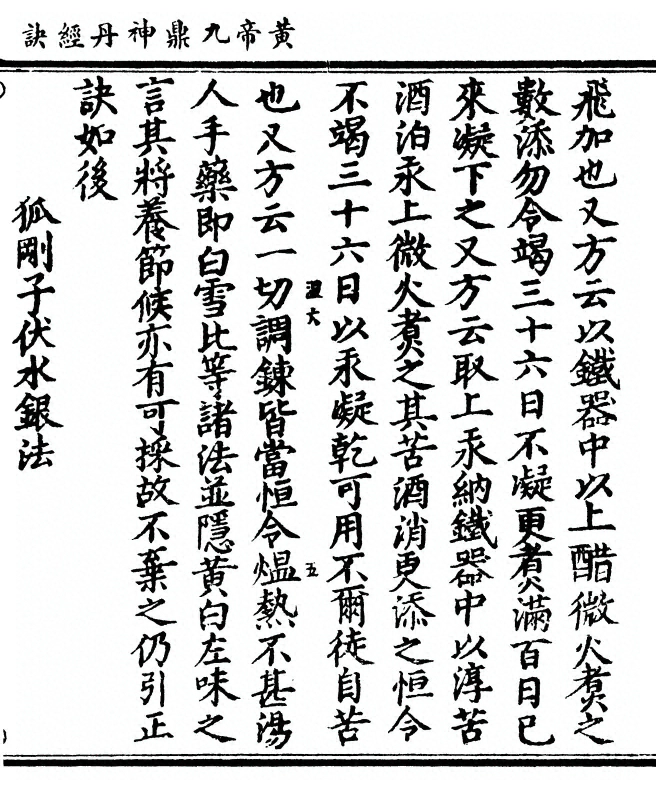 黃帝九鼎神丹經訣
飛加也又方云以鐵器中以上醋微火煮之
數添勿令竭三十六日不凝更煮滿百日已
來凝下之又方云取上汞納鐵器中以淳苦
酒泊汞上微火煮之其苦酒消更添之恒令
不竭三十六日以汞凝乾可用不爾徒自苦
也又方云一切調鍊皆當恒令熅熱不甚湯
人手藥即白雪比等諸法並隱黃白左味之
言其將養節候亦有可採故不棄之仍引正
訣如後
狐剛子伏水銀法
五